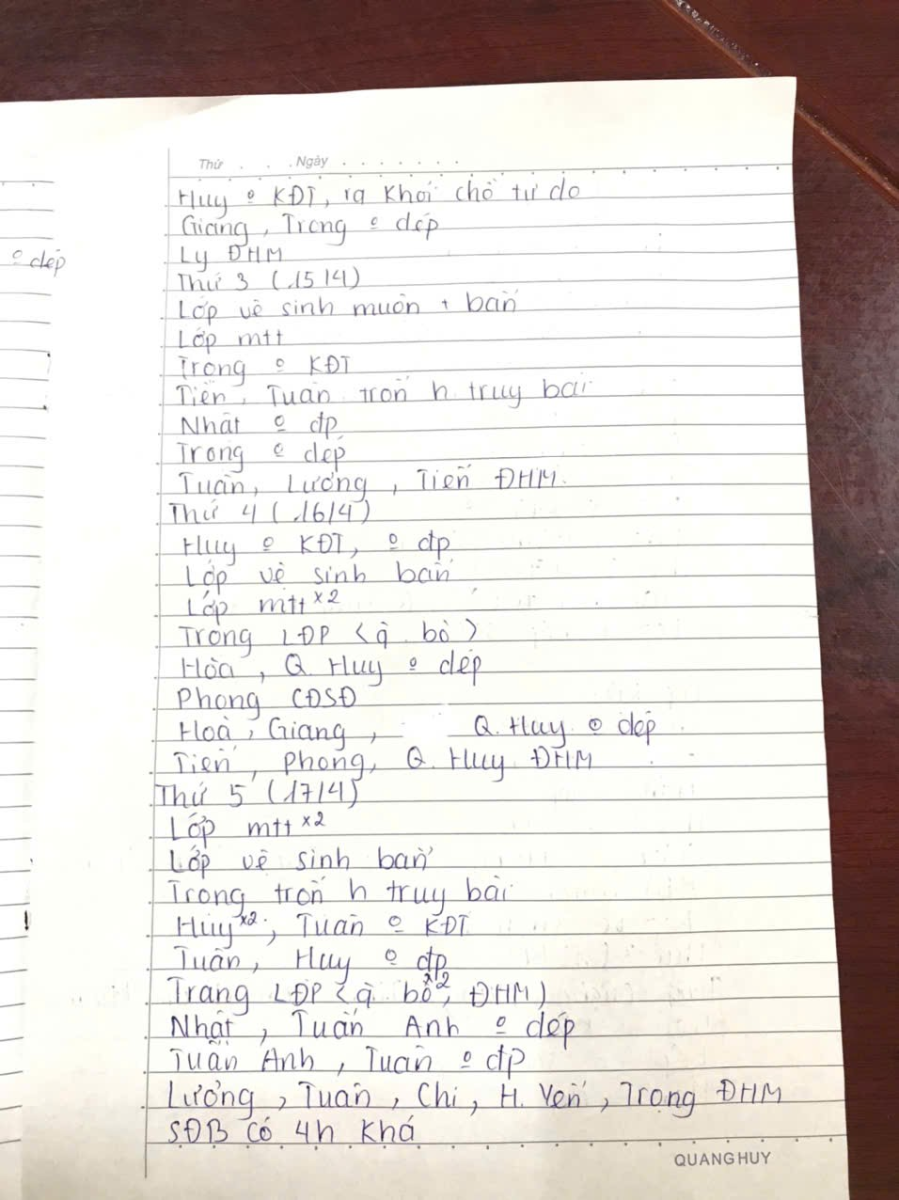 Thứ . . . Ngày . . . . . . .
Huy º KĐT, ra khỏi chỗ tự do
Giang, Trọng º dép
º dép
Ly ĐHM
Thứ 3 (15/4)
Lớp vệ sinh muộn + bẩn
Lớp mtt
Trọng º KĐT
Tiến, Tuấn trốn h truy bài
Nhật º đp
Trọng º dép
Tuấn, Lương, Tiến ĐHM
Thứ 4 (16/4)
Huy º KĐT, º đp
Lớp vệ sinh bẩn
Lớp mtt x2
Trọng LĐP (q bò)
Hòa, Q. Huy º dép
Phong CĐSĐ
Hoà, Giang, Q. Huy º dép
Tiến, Phong, Q. Huy ĐHM
Thứ 5 (17/4)
Lớp mtt x2
Lớp vệ sinh bẩn
Trọng trốn h truy bài
Huy x2, Tuấn º KĐT
Tuấn, Huy º đp
Trang LĐP (q bò x2, ĐHM)
Nhật, Tuấn Anh º dép
Tuấn Anh, Tuấn º đp
Lương, Tuấn, Chi, H. Yến, Trọng ĐHM
SĐB có 4h khá
QUANG HUY